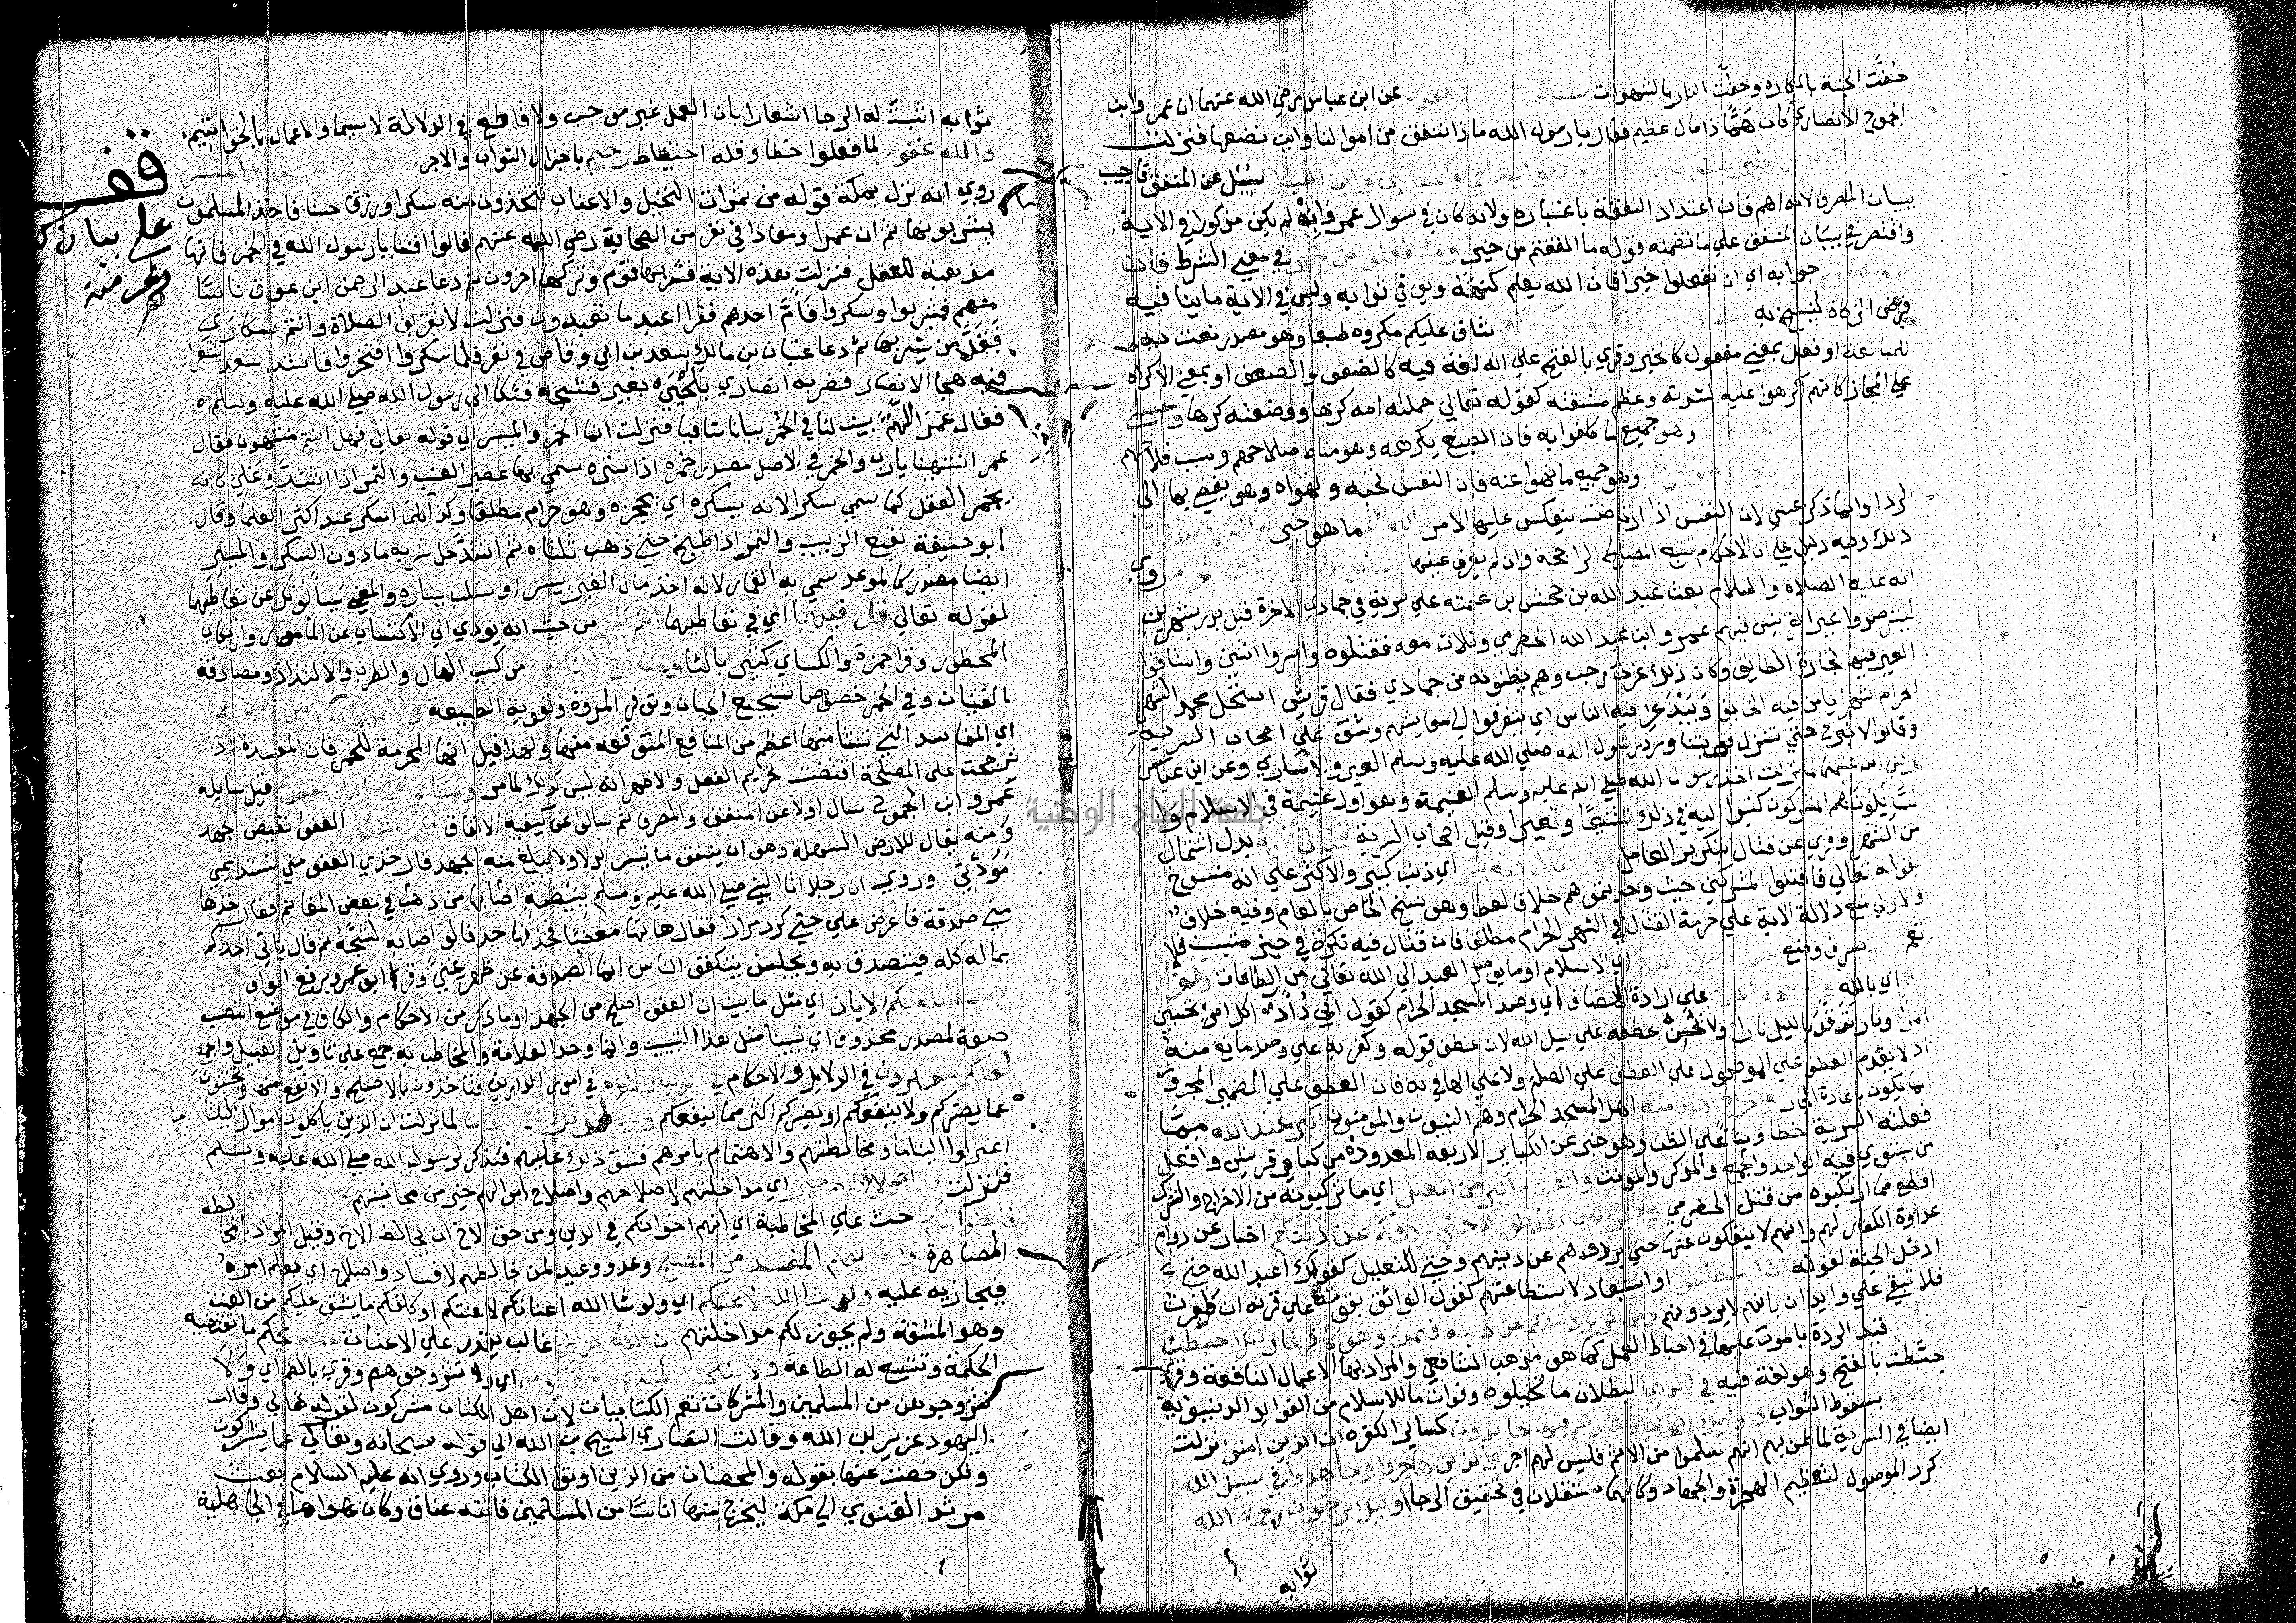 حفت الجنة بالمكاره وحفت النار بالشهوات عن ابن عباس رضي الله عنهما ان عمرو ابن
الجموح الانصاري كان هما ذا مال عظيم فقال يا رسول الله ماذا ننفق من اموالنا واين نضعها فنزلت
سئل عن المنفق فاجيب
ببيان المصرف لانه اهم فان اعتداد النفقة باعتباره ولانه كان في سوال عمرو وانه لم يكن مذكورا في الاية
واقتصر في بيان المنفق علي ما تضمنه قوله ما انفقتم من خير وما تفعلوا من خير في معني الشرط
جوابه اي ان تفعلوا خيرا فان الله يعلم كنهه ويوفي ثوابه وليس في الاية ما ينافيه
فرض الزكاة لينسخ به شاق عليكم مكروه طبعا وهو مصدر نعت به
للمبالغة او فعل بمعني مفعول كالخبز وقري بالفتح علي انه لغة فيه كالضعف والضعف او بمعني الاكراه
علي المجاز كانهم اكرهوا عليه لشدته وعظم مشقته كقوله تعالي حملته امه كرها ووضعته كرها
وهو جميع ما كلفوا به فان الطبع يكرهه وهو مناط صلاحهم وسبب فلاحهم
وهو جميع ما نهوا عنه فان النفس تحبه وتهواه وهو يفضي بها الي
الردا وانما ذكر عسي لان النفس اذا ارتاضت ينعكس عليها الامر ما هو خير
ذلك وفيه دليل علي ان الاحكام تتبع المصالح الراجحة وان لم يعرف عينها روي
انه عليه الصلاه والسلام بعث عبد الله بن جحش بن عمته علي سرية في جمادي الاخرة قبل بدر بشهرين
ليترصدوا عير القريش فيهم عمرو ابن عبد الله الحضرمي وثلاث معه فقتلوه واسروا اثنين واستاقوا
العير فيها تجارة الطايف وكان ذلك غرة رجب وهم يظنونه من جمادي فقال قريش استحل محمد الشهر
الحرام شهرا يامن فيه الخايف ويبذعر فيه الناس اي يتفرقوا الي معايشهم وشق علي اصحاب السرية
وقالوا لا نبرح حتي تنزل توبتنا ورد رسول الله صلي الله عليه وسلم العير والاساري وعن ابن عباس
رضي الله عنهما لما نزلت اخذ رسول الله صلي الله عليه وسلم الغنيمة وهو اول غنيمة في الاسلام
هم المشركون كتبوا اليه في ذلك تشنيعا وتعييرا وقيل اصحاب السرية بدل اشتمال
من الشهر وقري عن قتال بتكرير العامل اي ذنب كبير والاكثر علي انه منسوخ
بقوله تعالي فاقتلوا المشركين حيث وجدتموهم خلافا لعطا وهو نسخ الخاص بالعام وفيه خلاف
والاولي منع دلالة الاية علي حرمة القتال في الشهر الحرام مطلقا فان قتال فيه نكرة في حيز مثبت فلا
تعم صرف ومنع اي الاسلام او ما يوصل العبد الي الله تعالي من الطاعات
اي بالله علي ارادة المضاف اي وصد المسجد الحرام كقول
ونار توقد بالليل نارا ولا يحسن عطفه علي سبيل الله لان عطف قوله وكفر به علي وصد مانع منه
اذ لا يقدم العطف علي الموصول علي العطف علي الصلة ولا علي الها في به فان العطف علي الضمير المجرور
انما يكون باعادة الجار اهل المسجد الحرام وهم النبيون والمومنون اكبر عند الله مما
فعلته السرية خطا وبنا علي الظن وهو خبر عن الكباير الاربعه المعدودة من كبار قريش وافعل
من يستوي فيه الواحد والجمع والمذكر والمونث والفتنة اكبر من القتل اي ما ترتكبونه من الاخراج والشرك
افظع مما ارتكبوه من قتل الحضرمي ولا يزالون يقاتلونكم حتي يردوكم عن دينكم اخبار عن دوام
عداوة الكفار لهم وانهم لا ينفكون عنها حتي يردوهم عن دينهم وحتي للتعليل كقولك اعبد الله حتي
ادخل الجنة لقوله ان استطاعوا او استبعاد لاستطاعتهم كقول الواثق بقوته علي قرنه ان ظفرت
فلا تبقي علي وايدان بانهم لا يردونهم ومن يرتدد منكم عن دينه فيمت وهو كافر فاوليك حبطت
قيد الردة بالموت عليها في احباط العمل كما هو مذهب الشافعي والمراد بها الاعمال النافعة وقري
حبطت بالفتح وهو لغة فيه في الدنيا لبطلان ما تخيلوه وفوات ما للاسلام من الفوايد الدنيوية
بسقوط الثواب واوليك اصحاب النار هم فيها خالدون كساير الكفرة ان الذين امنوا نزلت
ايضا في السرية لما ظن بهم انهم سلموا من الاثم فليس لهم اجر والذين هاجروا وجاهدوا في سبيل الله
كرر الموصول لتعظيم الهجرة والجهاد وكانهما مستقلان في تحقيق الرجا اوليك يرجون رحمة الله
ثوابه
ثوابه اثبت له الرجا اشعارا بان العمل غير موجب ولا قاطع في الدلالة لا سيما والاعمال بالخواتيم
والله غفور لما فعلوا خطا وقلة احتياط رحيم باجزال الثواب والاجر
روي انه نزل بمكة قوله من ثمرات النخيل والاعناب تتخذون منه سكرا ورزقا حسنا فاخذ المسلمون
يشربونها ثم ان عمرا ومعاذا في نفر من الصحابة رضي الله عنهم قالوا افتنا يا رسول الله في الخمر فانها
مذهبة للعقل فنزلت هذه الاية فشربها قوم وتركها اخرون ثم دعا عبد الرحمن ابن عوف ناسا
منهم فشربوا وسكروا فام احدهم فقرا اعبد ما تعبدون فنزلت لا تقربوا الصلاة وانتم سكاري
فقل من يشربها ثم دعا عتبان بن مالك سعد بن ابي وقاص في نفر فلما سكروا افتخروا فانشد سعد شعرا
فيه هجا الانصار فضربه انصاري بلحي بعير فشجه فشكا الي رسول الله صلي الله عليه وسلم
فقال عمر اللهم بين لنا في الخمر بيانا شافيا فنزلت انما الخمر والميسر الي قوله تعالي فهل انتم منتهون فقال
عمر انتهينا يا رب والخمر في الاصل مصدر خمره اذا ستره سمي بها عصير العنب والتمر اذا اشتد وغلي كانه
يخمر العقل كما سمي سكرا لانه يسكره اي يحجزه وهو حرام مطلقا وكذا كلما اسكر عند اكثر العلما وقال
ابو حنيفة نقيع الزبيب والتمر اذا طبخ حتي ذهب ثلثاه ثم اشتد حل شربه ما دون السكر والميسر
ايضا مصدر كالموعد سمي به القمار لانه اخذ مال الغير بيسر او سلب يساره والمعني يسألونك عن تعاطيهما
لقوله تعالي قل فيهما اي في تعاطيهما اثم كبير من حيث انه يودي الي الانتكاب عن المامور وارتكاب
المحظور وقرا حمزة والكساي كثير بالثا ومنافع للناس من كسب المال والطرب والالتذاذ ومصادقة
الفتيان وفي الخمر خصوصا تشجيع الجبان وتوفر المروة وتقوية الطبيعة واثمهما اكبر من نفعهما
اي المفاسد التي تنشا منها اعظم من المنافع المتوقعه منها ولهذا قيل انها المحرمة للخمر فان المفسدة اذا
ترجحت علي المصلحة اقتضت تحريم الفعل والاظهر انه ليس كذلك لما مر ويسالونك ماذا ينفقون قيل سايله
عمرو ابن الجموح سال اولا عن المنفق والمصرف ثم سال عن كيفية الانفاق قل العفو العفو نقيض الجهد
ومنه يقال للارض السهلة وهو ان ينفق ما تيسر بذله ولا يبلغ منه الجهد قال خذي العفو مني تستديمي
مودتي وروي ان رجلا اتا النبي صلي الله عليه وسلم ببيضة اصابها من ذهب في بعض المغانم فقال خذها
مني صدقة فاعرض علي حتي كرر مرارا فقال هاتها مغضبا فخذفها حذفا لو اصابه لشجه ثم قال ياتي احدكم
بماله كله فيتصدق به ويجلس يتكفف الناس انما الصدقة عن ظهر غني وقرا ابو عمرو برفع الواو
الله لكم الايات اي مثل ما بين ان العفو اصلح من الجهد او ما ذكر من الاحكام والكاف في موضع النصب
صفة لمصدر محذوف اي تبيينا مثل هذا التبيين وانما وحد العلامة والمخاطب به جمع علي تاويل القبيل والجمع
لعلكم تتفكرون في الدلايل والاحكام في الدنيا والاخرة في امور الدارين فتاخذون بالاصلح والانفع منها وتجتنبون
عما يضركم ولا ينفعكم او يضركم اكثر مما ينفعكم لما نزلت ان الذين ياكلون اموال اليتاما
اعتزلوا اليتاما ومخالطتهم والاهتمام بامرهم فشق ذلك عليهم فذكر لرسول الله صلي الله عليه وسلم
فنزلت قل اصلاح لهم خير اي مداخلتهم لاصلاحهم واصلاح اموالهم خير من مجانبتهم
فاخوانكم حث علي المخاطبة اي انهم اخوانكم في الدين ومن حق الاخ ان يخالط الاخ وقيل المراد بالمخالطه
المصاهرة والله يعلم المفسد من المصلح وعد ووعيد لمن خالطهم لافساد واصلاح اي يعلم امره
فيجازيه عليه ولو شا الله لاعنتكم اي ولو شا الله اعناتكم لاعنتكم او كلفكم ما يشق عليكم من العنت
وهو المشقة ولم يجوز لكم مداخلتهم ان الله عزيز غالب يقدر علي الاعنات حكيم يحكم ما تقتضيه
الحكمة وتتسع له الطاعة ولا تنكحوا المشركات حتي يومن اي ولا تتزوجوهم وقري بالضم اي ولا
تتزوجوهن من المسلمين والمشركات تعم الكتابيات لان اهل الكتاب مشركون لقوله تعالي وقالت
اليهود عزير ابن الله وقالت النصاري المسيح بن الله الي قوله سبحانه وتعالي عما يشركون
ولكن خصت عنها بقوله والمحصنات من الذين اوتوا الكتاب وروي انه عليه السلام بعث
مرثد الغنوي الي مكة ليخرج منها اناسا من المسلمين فاتته عناق وكان يهواها في الجاهلية
قف
علي بيان
جامعة النجاح الوطنية